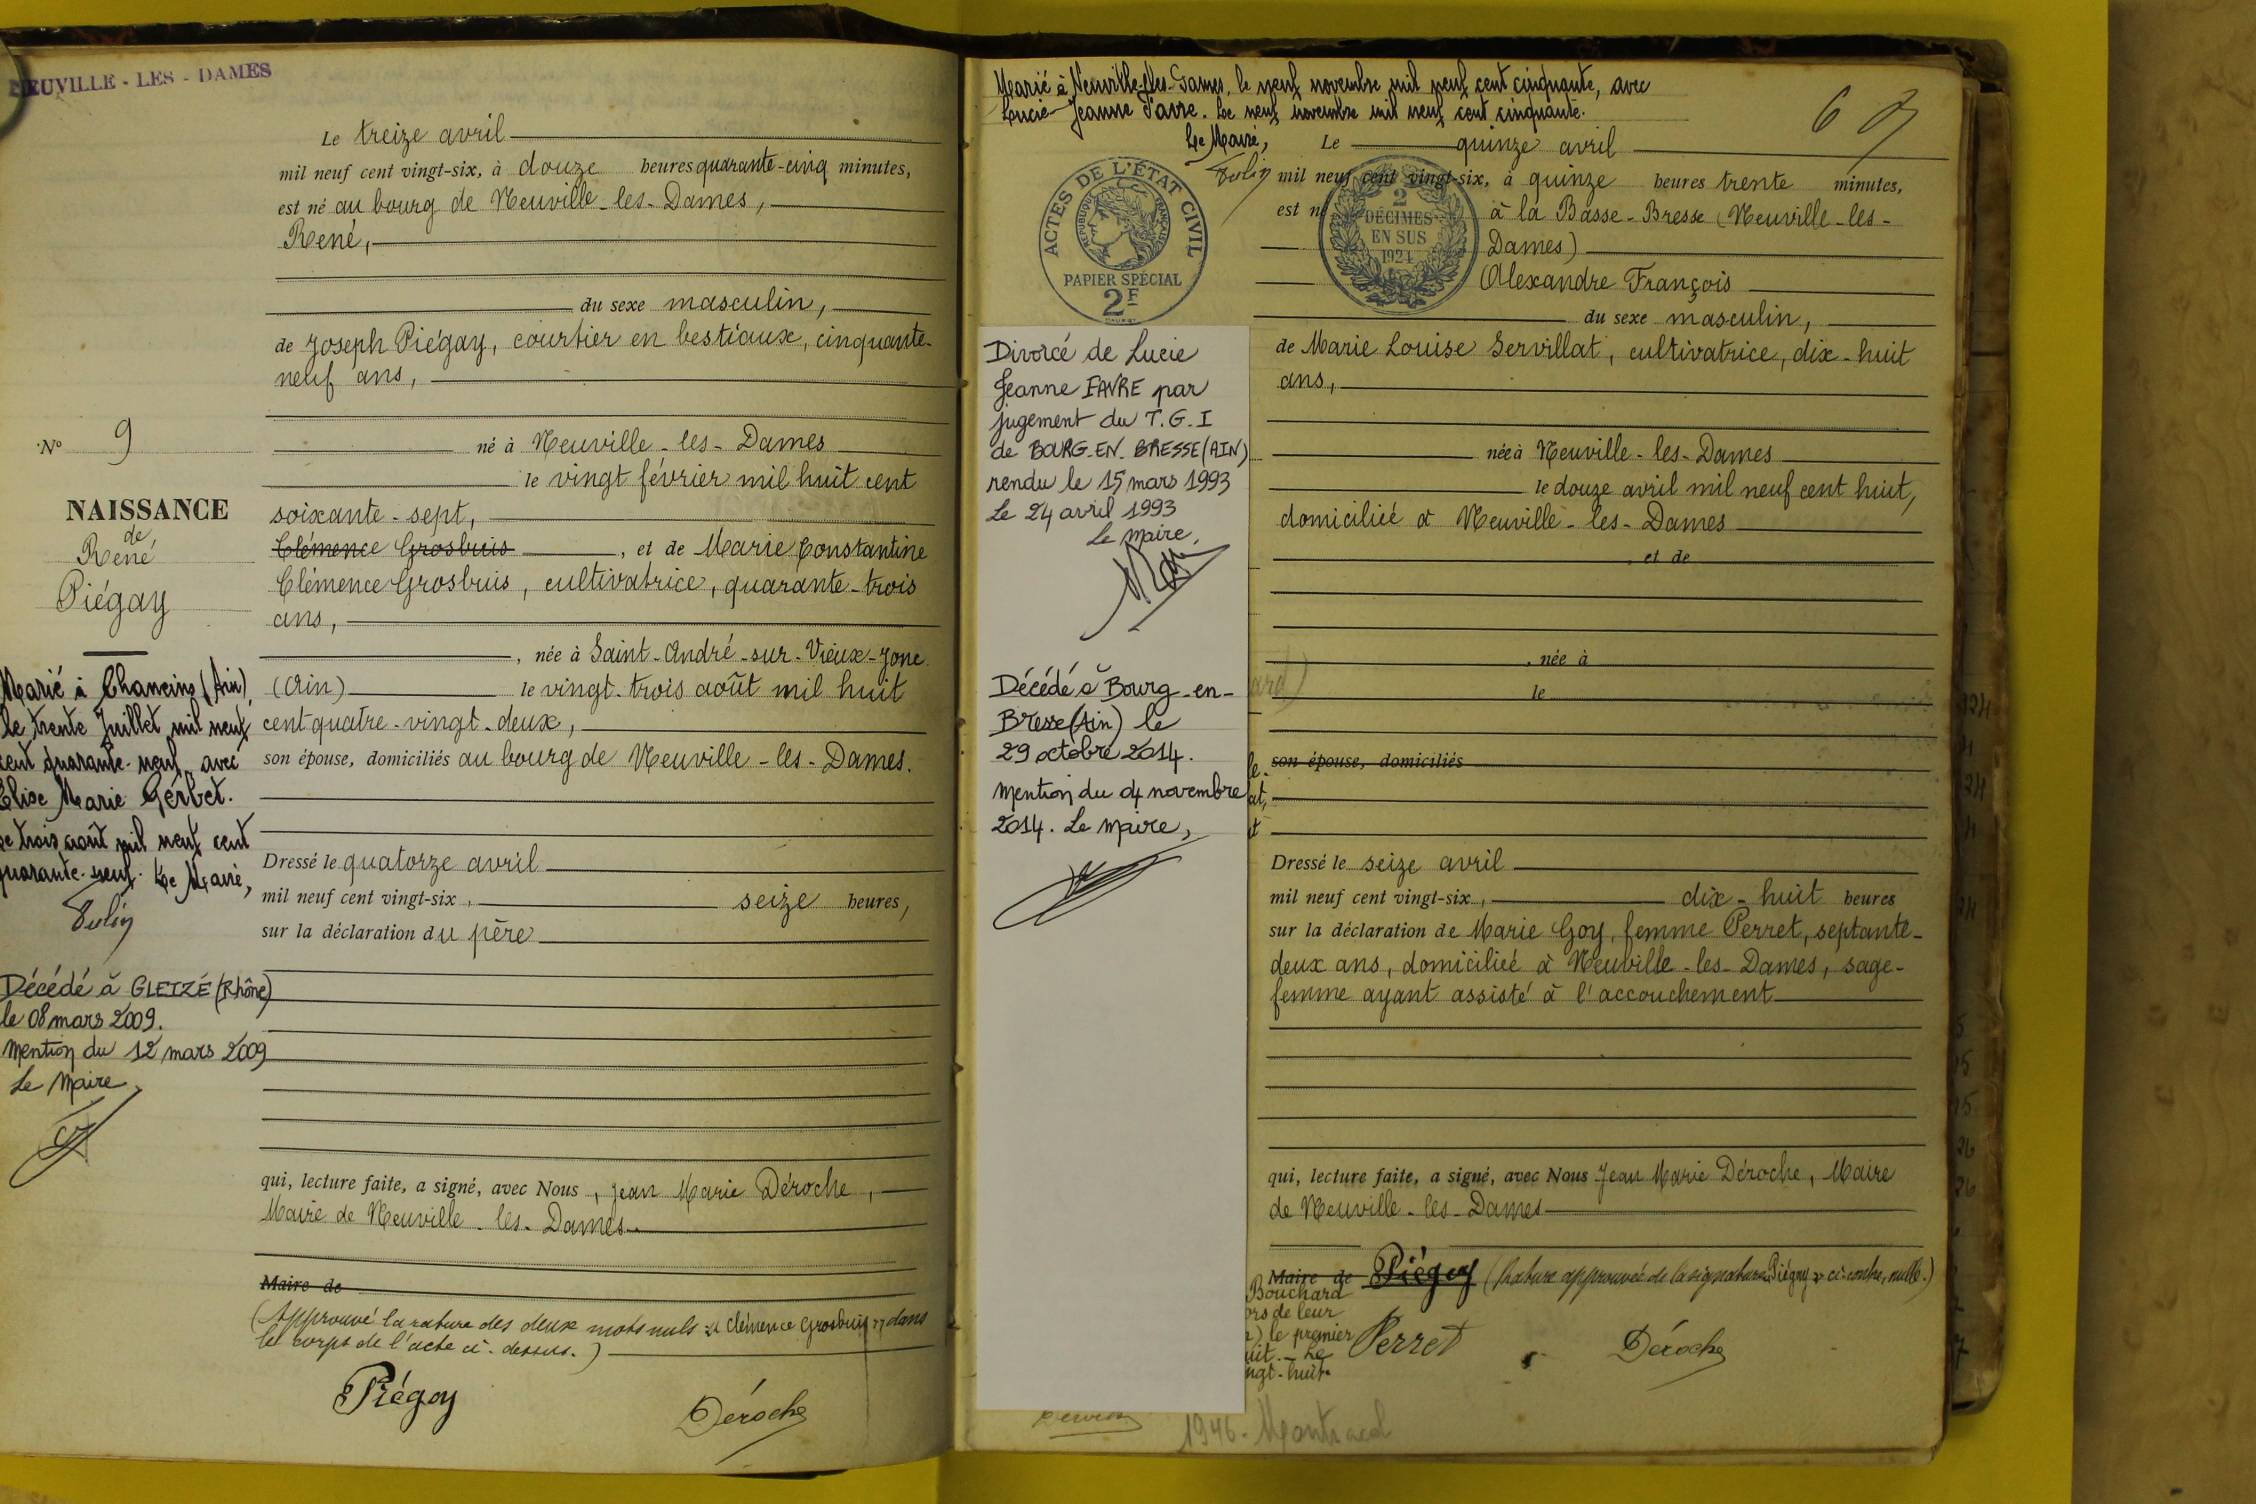 NEUVILLE - LES - DAMES
Le treize avril
mil neuf cent vingt-six, à douze heures quarante-cinq minutes,
est né au bourg de Neuville-les-Dames,
René,
du sexe masculin,
de Joseph Piégay, courtier en bestiaux, cinquante-
neuf ans,
né à Neuville-les-Dames
le vingt février mil huit cent
soixante-sept,
Clémence Grosbuis, et de Marie Constantine
Clémence Grosbuis, cultivatrice, quarante-trois
ans,
, née à Saint-André-sur-Vieux-Jonc
(Ain) le vingt-trois août mil huit
cent quatre-vingt-deux,
son épouse, domiciliés au bourg de Neuville-les-Dames.
Dressé le quatorze avril
mil neuf cent vingt-six, seize heures,
sur la déclaration du père
qui, lecture faite, a signé, avec Nous, Jean Marie Déroche,
Maire de Neuville-les-Dames.
Maire de
(Approuvé la rature des deux mots nuls "Clémence Grosbuis" dans
le corps de l'acte ci-dessus.)
Piégay Déroche
N° 9
NAISSANCE
de
René
Piégay
Marié à Chaneins (Ain)
le trente Juillet mil neuf
cent quarante-neuf avec
Elise Marie Gerbet.
Le trois août mil neuf cent
quarante-neuf. Le Maire,
Décédé à GLEIZÉ (Rhône)
le 08 mars 2009.
Mention du 12 mars 2009
Le Maire,
Marié à Neuville-les-Dames, le neuf novembre mil neuf cent cinquante, avec
Lucie Jeanne Favre. Le neuf novembre mil neuf cent cinquante.
Le Maire,
6
ACTES DE L'ÉTAT CIVIL
RÉPUBLIQUE FRANÇAISE
PAPIER SPÉCIAL
2F
2
DÉCIMES
EN SUS
1924
Le quinze avril
mil neuf cent vingt-six, à quinze heures trente minutes,
est né à la Basse-Bresse (Neuville-les-
Dames)
Alexandre François
du sexe masculin,
de Marie Louise Servillat, cultivatrice, dix-huit
ans,
née à Neuville-les-Dames
le douze avril mil neuf cent huit,
domiciliée à Neuville-les-Dames
, et de
, née à
le
son épouse, domiciliés
Dressé le seize avril
mil neuf cent vingt-six, dix-huit heures
sur la déclaration de Marie Goy, femme Perret, septante-
deux ans, domiciliée à Neuville-les-Dames, sage-
femme ayant assisté à l'accouchement
qui, lecture faite, a signé, avec Nous Jean Marie Déroche, Maire
de Neuville-les-Dames
Maire de Piégay (Rature approuvée de la signature "Piégay" ci-contre, nulle.)
Perret Déroche
Divorcé de Lucie
Jeanne FAVRE par
jugement du T.G.I
de BOURG-EN-BRESSE (AIN)
rendu le 15 mars 1993
Le 24 avril 1993
Le Maire,
Décédé à Bourg-en-
Bresse (Ain) le
29 octobre 2014.
Mention du 04 novembre
2014. Le Maire,
Bouchard
ors de leur
) le premier
uit. - Le
ngt-huit.
1946 -